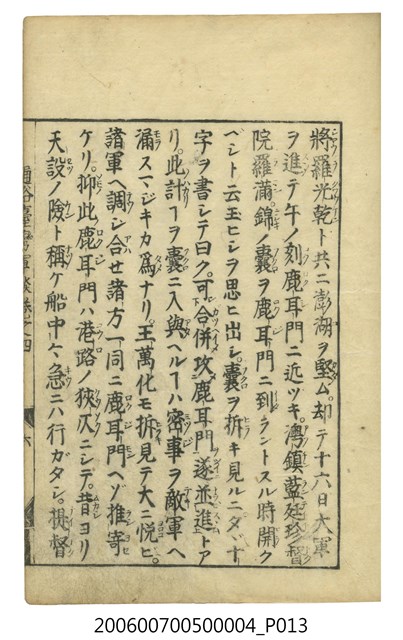 將羅光乾ト共ニ澎湖ヲ堅ム。却テ十六日大軍
ヲ進テ午ノ刻鹿耳門ニ近ツキ。灣鎮藍廷珍督
院羅滿。錦ノ囊ヲ鹿耳門ニ到ラントスル時開ク
ベシト云玉ヒシヲ思ヒ出シ。囊ヲ拆キ見ルニタヾ十
字ヲ書シテ曰ク。可合併攻鹿耳門遂並進トア
リ。此計ヲ囊ニ入與ヘルハ密事ヲ敵軍ヘ
漏スマジキカ為ナリ。王萬化モ拆見テ大ニ悅ヒ。
諸軍ヘ調シ合せ諸方一同ニ鹿耳門ヘゾ推寄
ケリ。抑此鹿耳門ハ港路ノ狹仄ニシテ。昔ヨリ
天設ノ險ト稱ケ船中々急ニハ行ガタシ。提督
通俗臺灣軍談卷之四
六
200600700500004_P013